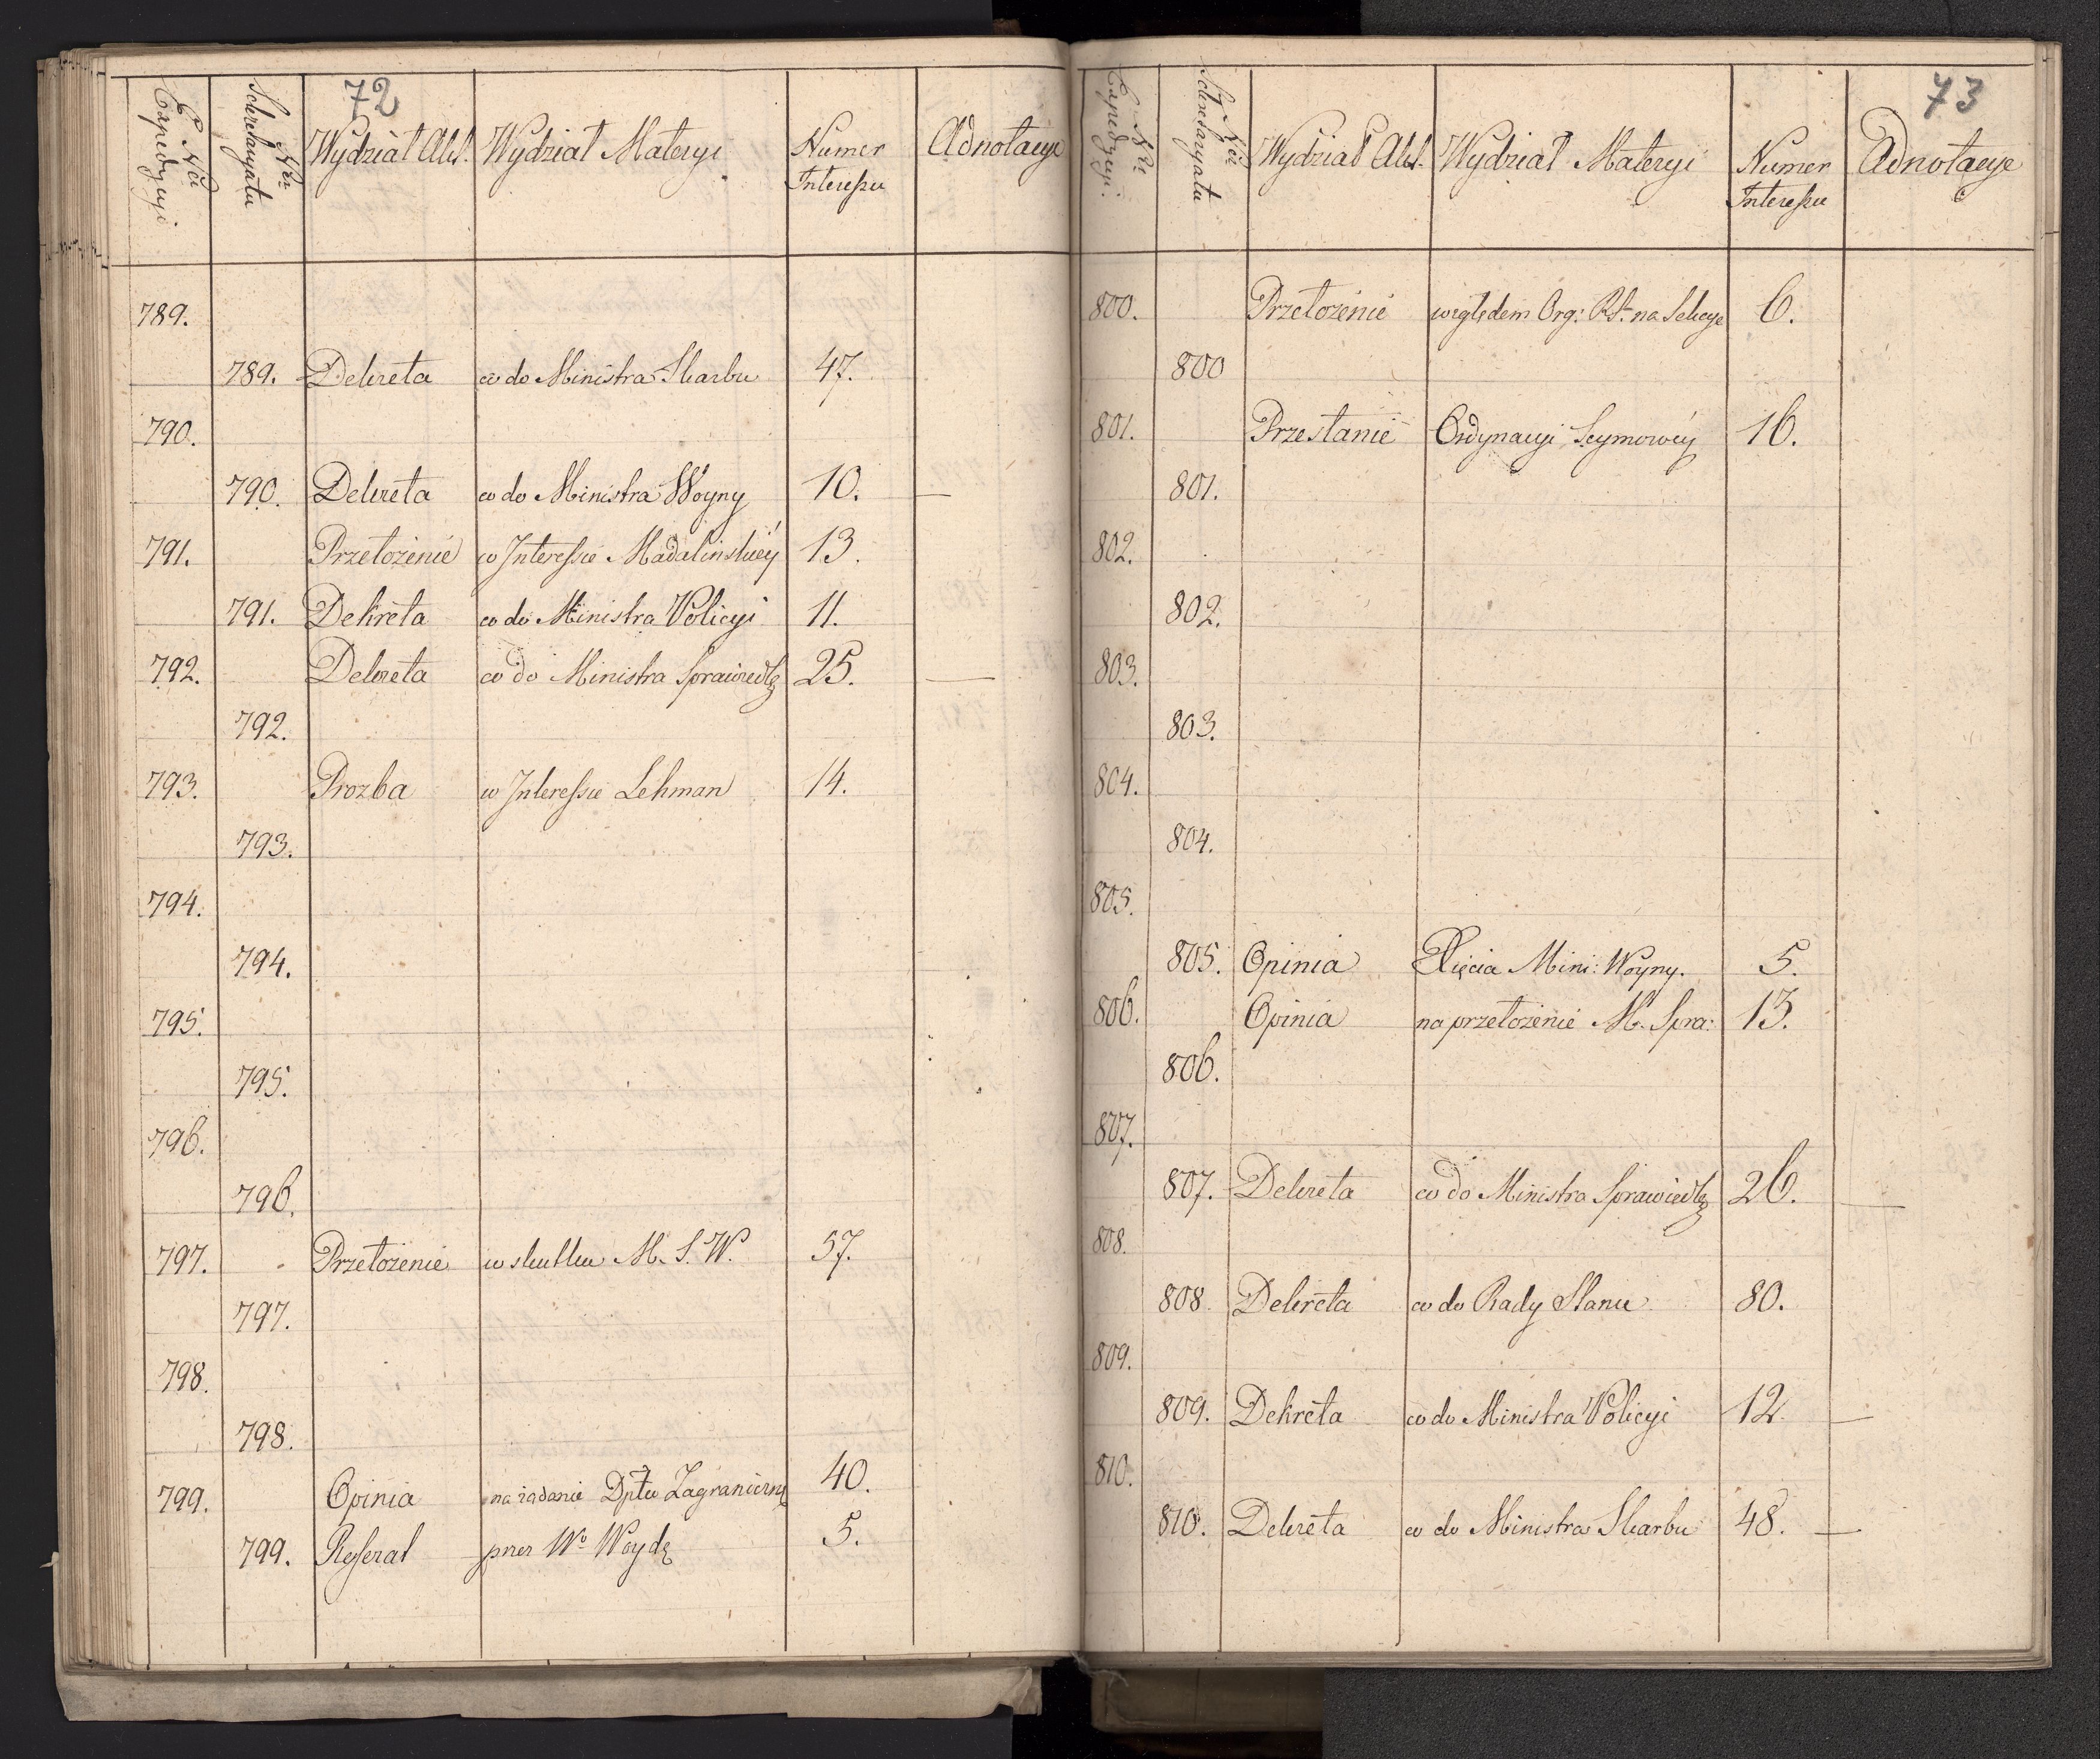 72
Nro Expedycyi
Nro Sekretaryatu
Wydział Akt.
Wydział Materyi
Numer Interessu
Adnotacye
789.
789. Dekreta co do Ministra Skarbu 47.
790.
790. Dekreta co do Ministra Woyny 10. —
791. Przełożenie w Interessie Madalinskiey 13.
791. Dekreta co do Ministra Policyi 11.
792. Dekreta co do Ministra Sprawiedlę 25. —
792.
793. Prozba w Interessie Lehman 14.
793.
794.
794.
795.
795.
796.
796.
797. Przełożenie w skutku M. S. W. 57.
797.
798.
798.
799. Opinia na żadanie Dptu Zagraniczn 40.
799. Referat przez Wo Woydę 5.
73
Nro Expedycyi.
Nro Sekretaryatu
Wydział Akt.
Wydział Materyi
Numer Interessu
Adnotacye
800. Przełożenie względem Org: R St. na Sekcye 6.
800
801. Przesłanie Ordynacyi Seymowey 16.
801.
802.
802.
803.
803.
804.
804.
805.
805. Opinia Xięcia Mini: Woyny. 5.
806. Opinia na przełożenie M. Spra: 13.
806.
807.
807. Dekreta co do Ministra Sprawiedlę 26. —
808.
808. Dekreta co do Rady Stanu 80.
809.
809. Dekreta co do Ministra Policyi 12. —
810.
810. Dekreta co do Ministra Skarbu 48. —